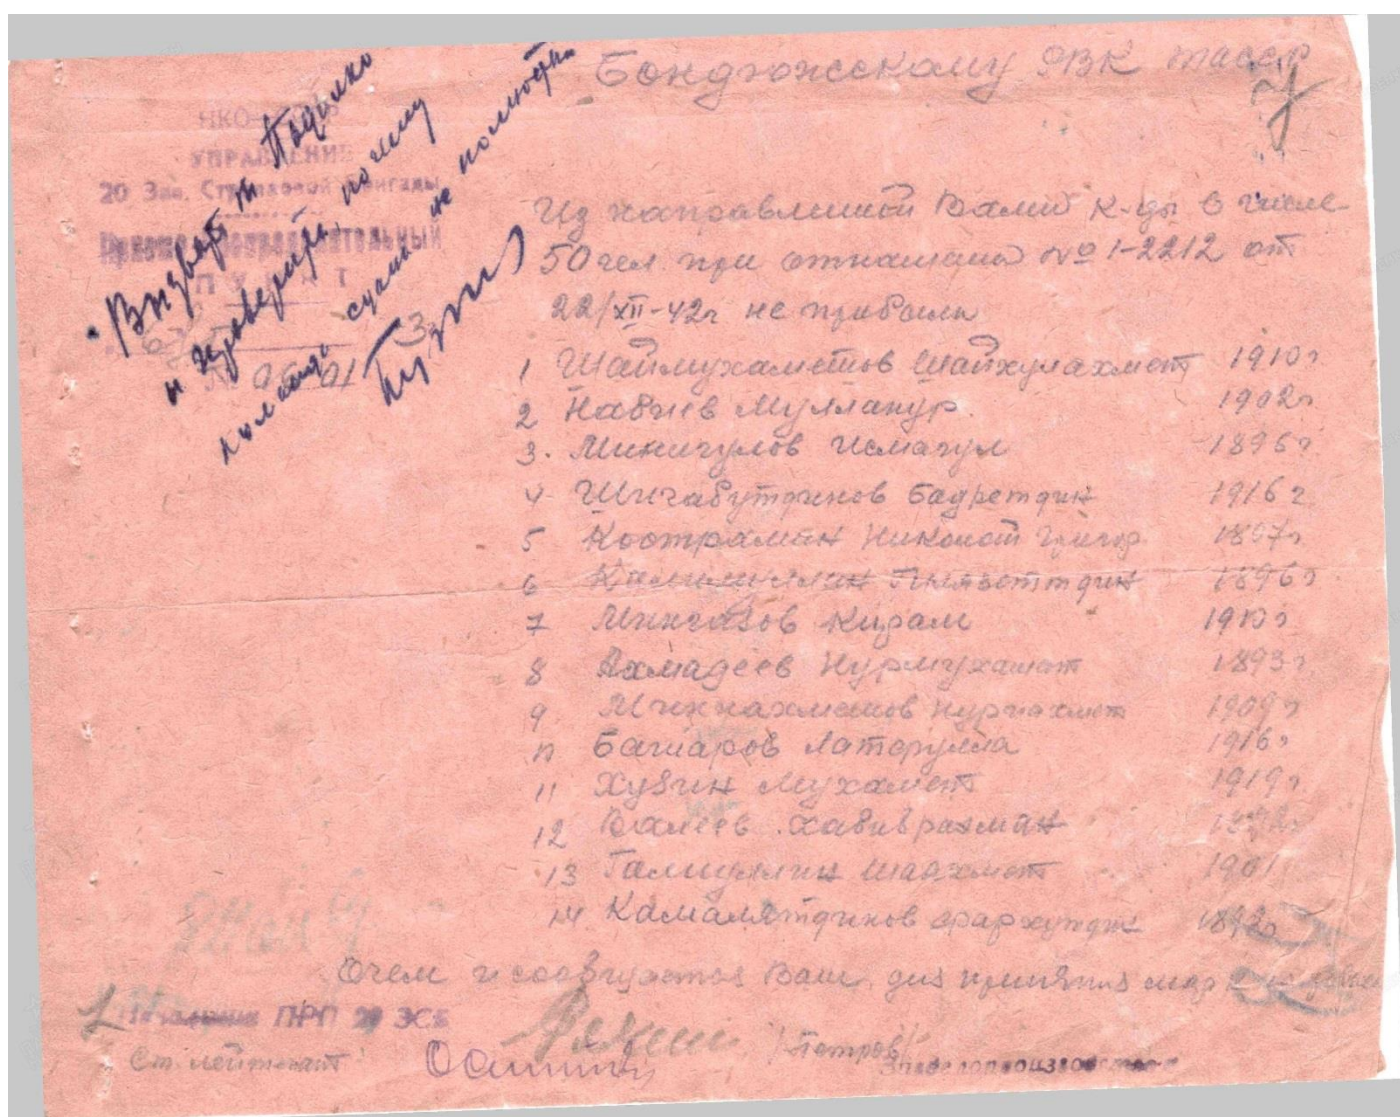 Бондюжскому РВК ТАССР
7
НКО-СССР
УПРАВЛЕНИЕ
20 Зап. Стрелковой Бригады
Приемо-распределительный
ПУНКТ
3
№ 06-01
Вызвать т. 
и проверить, почему
команда сдана не полностью
Из направленной Вами к-ды в числе
50 чел. при отношении № 1-2212 от
22/XII-42г не прибыли
1 Шаймухаметов Шайхулахмет 1910г
2 Набиев Мулланур 1902г
3. Минигулов Исмагул 1896г
4 Шигабутдинов Бадретдин 1916г
5 Костралин Николай Григор 1897г
6 Калимуллин 1896г
7 Мингазов Кирам 1910г
8 Ахмадеев Нурмухамет 1893г
9 Миннахметов Нуриахмет 1909г
10 Багиаров Латфулла 1916г
11 Хузин Мухамет 1919г
12 Валеев Хабибрахман
13 Галиуллин Шаахмет 1901
14 Камалятдинов Фархутдин 1892г
О чем и сообщается Вам для принятия мер
Начальник ПРП 20 ЗСБ
Ст. лейтенант /Петров/
Зав делопроизводством